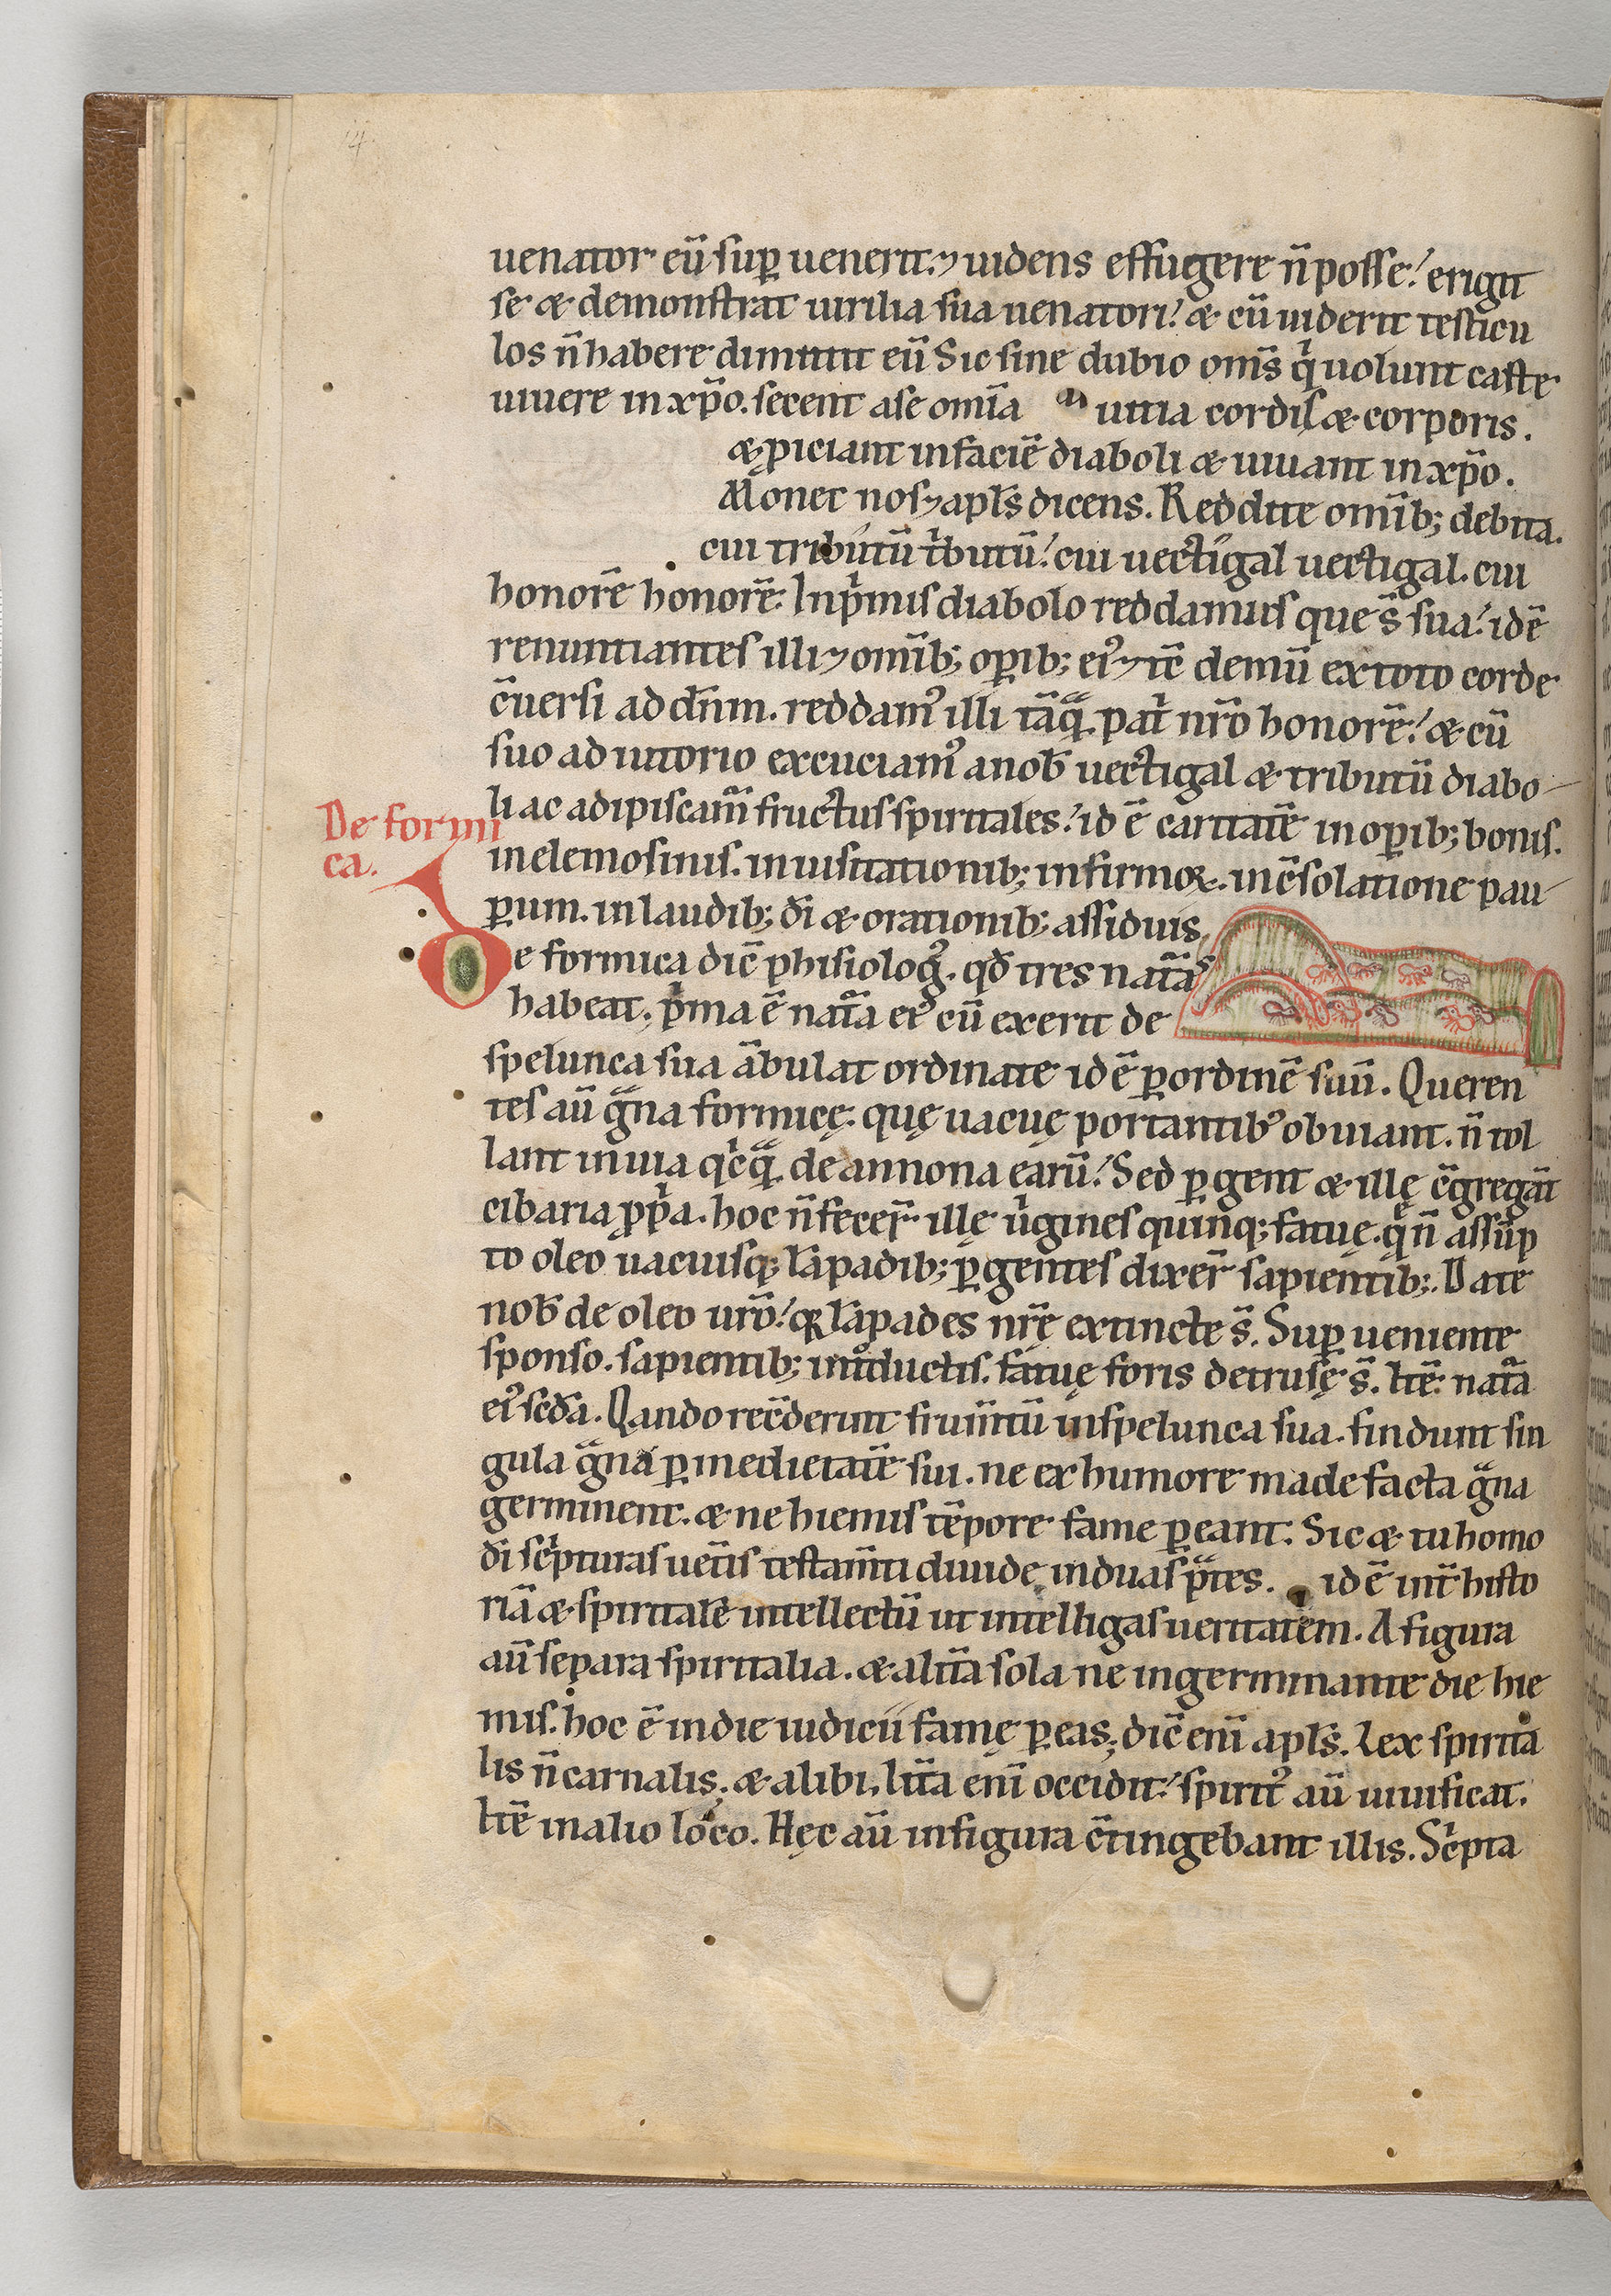 uenator eū suꝑ uenerit. ⁊ uidens effugere n̄ posse! erigit
se & demonstrat uirilia sua uenatori! & cū uiderit testicu
los n̄ habere dimittit eū Sic sine dubio om̄s qͥ uolunt caste
uiuere in xp̄o. secent a se om̄ia uitia cordis & corporis.
& ꝓiciant in faciē diaboli & uiuant in xp̄o.
Monet nos ⁊ apl̄s dicens. Reddite om̄ib; debita.
cui tributū tͥbutū! cui uectigal uectigal. cui
honorē honorē. Inpͥmis diabolo reddamus que s̄ sua! id ē
renuntiantes illi ⁊ om̄ib; oꝑib; eiꝰ ⁊ tc̄ demū ex toto corde
c̄uersi ad dn̄m. reddamꝰ illi tāqͣ patͥ nr̄o honorē! & cū
suo adiutorio excuciamꝰ a nob̄ uectigal & tributū diabo
li ac adipiscam̄ fructus spiritales! id ē caritatē in oꝑib; bonis.
De formi
ca.
in elemosinis. in uisitationib; infirmoꝝ. in c̄solatione pau
ꝑum. in laudib; dī & orationib; assiduis
De formica dic̄ phisiologꝰ. qđ tres natͣas
habeat. pͥma ē natͣa eiꝰ cū exerit de
spelunca sua ābulat ordinate id ē ꝑ ordinē suū. Queren
tes aū gͣna formicę. quę uacuę portantibꝰ obuiant. n̄ tol
lant in uia qͥcqͣ de annona earū! Sed ꝑgent & illę c̄gregāt
cibaria ꝓpͥa. hoc n̄ fecer̄ illę uͥgines quinq; fatuę. qͥ n̄ assūp
to oleo uacuisq; lāpadib; ꝑgentes dixer̄ sapientib;. Date
nob̄ de oleo ur̄o! qꝛ lāpades nr̄ę extincte s̄. Suꝑ ueniente
sponso. sapientib; intͦductis. fatuę foris detrusę s̄. Itē natͣa
eiꝰ scđa. Qando recōderunt frum̄tū in spelunca sua. findunt sin
gula gͣna ꝑ medietatē sui. ne ex humore madefacta gͣna
germinent. & ne hiemis tēpore fame ꝑeant. Sic & tu homo
dī scͥpturas uet̄is testam̄ti diuide in duas ꝑtes. id ē int̄ histo
riā & spiritalē intellectū ut intelligas ueritatem. A figura
aū separa spiritalia. & a lit̄a sola ne in germinante die hie
mis. hoc ē in die iudicii famę ꝑeas; dic̄ eni apl̄s. Lex spirita
lis n̄ carnalis. & alibi. lit̄a eni occidit! spiritꝰ aū uiuificat.
Itē in alio loco. Hęc aū in figura c̄tingebant illis. Scͥpta